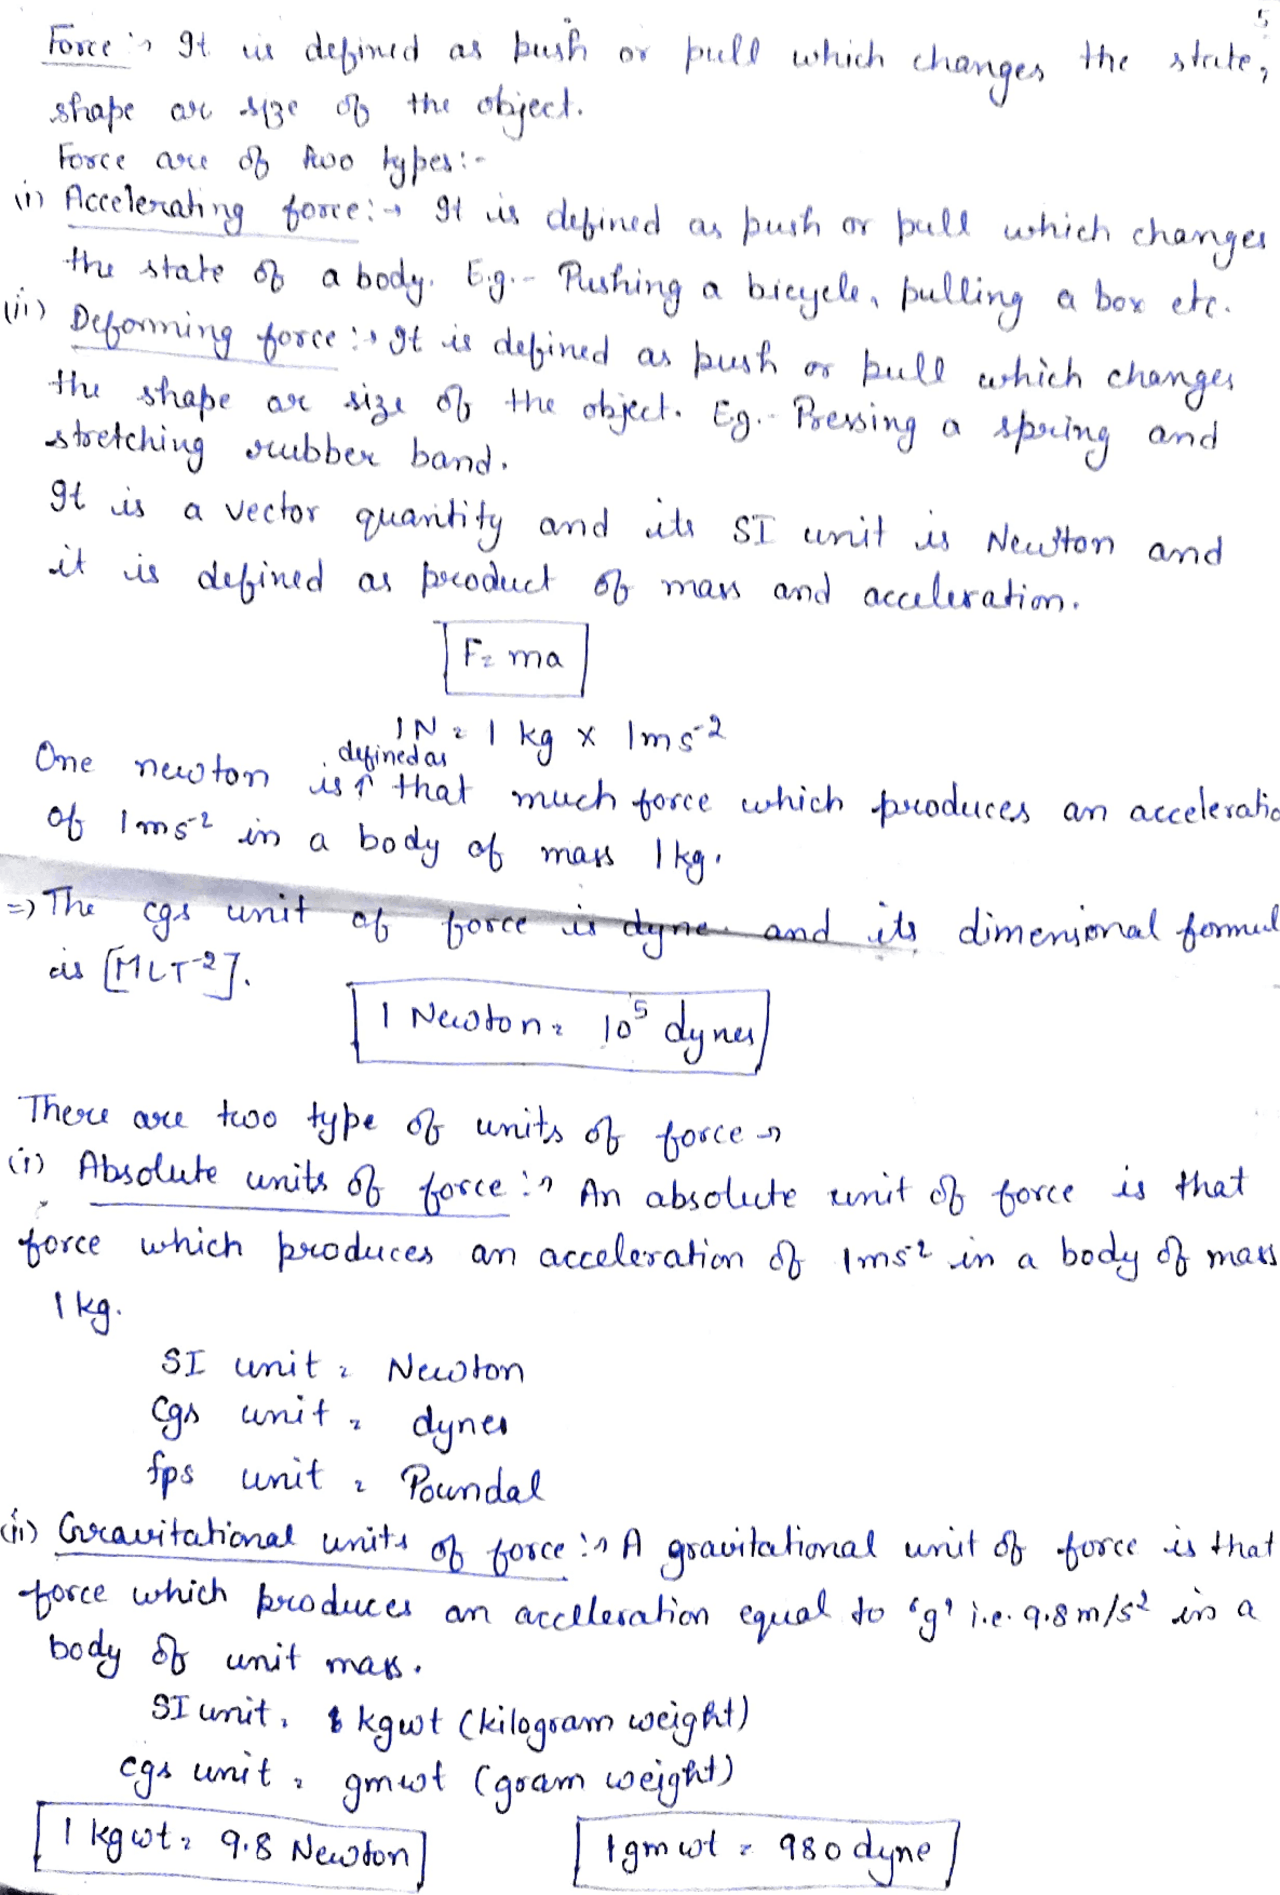 5
Force :→ It is defined as push or pull which changes the state,
shape or size of the object.
Force are of two types:-
(i) Accelerating force :→ It is defined as push or pull which changes
the state of a body. E.g.- Pushing a bicycle, pulling a box etc.
(ii) Deforming force :→ It is defined as push or pull which changes
the shape or size of the object. Eg.- Pressing a spring and
stretching rubber band.
It is a vector quantity and its SI unit is Newton and
it is defined as product of mass and acceleration.
F= ma
1N = 1 kg x 1ms-2
One newton is defined as that much force which produces an acceleratio
of 1ms-2 in a body of mass 1kg.
=) The cgs unit of force is dyne. and its dimensional formul
is [MLT-2].
1 Newton = 10^5 dynes
There are two type of units of force →
(i) Absolute units of force :→ An absolute unit of force is that
force which produces an acceleration of 1ms-2 in a body of mass
1kg.
SI unit = Newton
Cgs unit = dynes
fps unit = Poundal
(ii) Gravitational units of force :→ A gravitational unit of force is that
force which produces an acclleration equal to 'g' i.e. 9.8 m/s2 in a
body of unit mass.
SI unit = kgwt (kilogram weight)
cgs unit = gmwt (gram weight)
1 kgwt = 9.8 Newton
1gm wt = 980 dyne